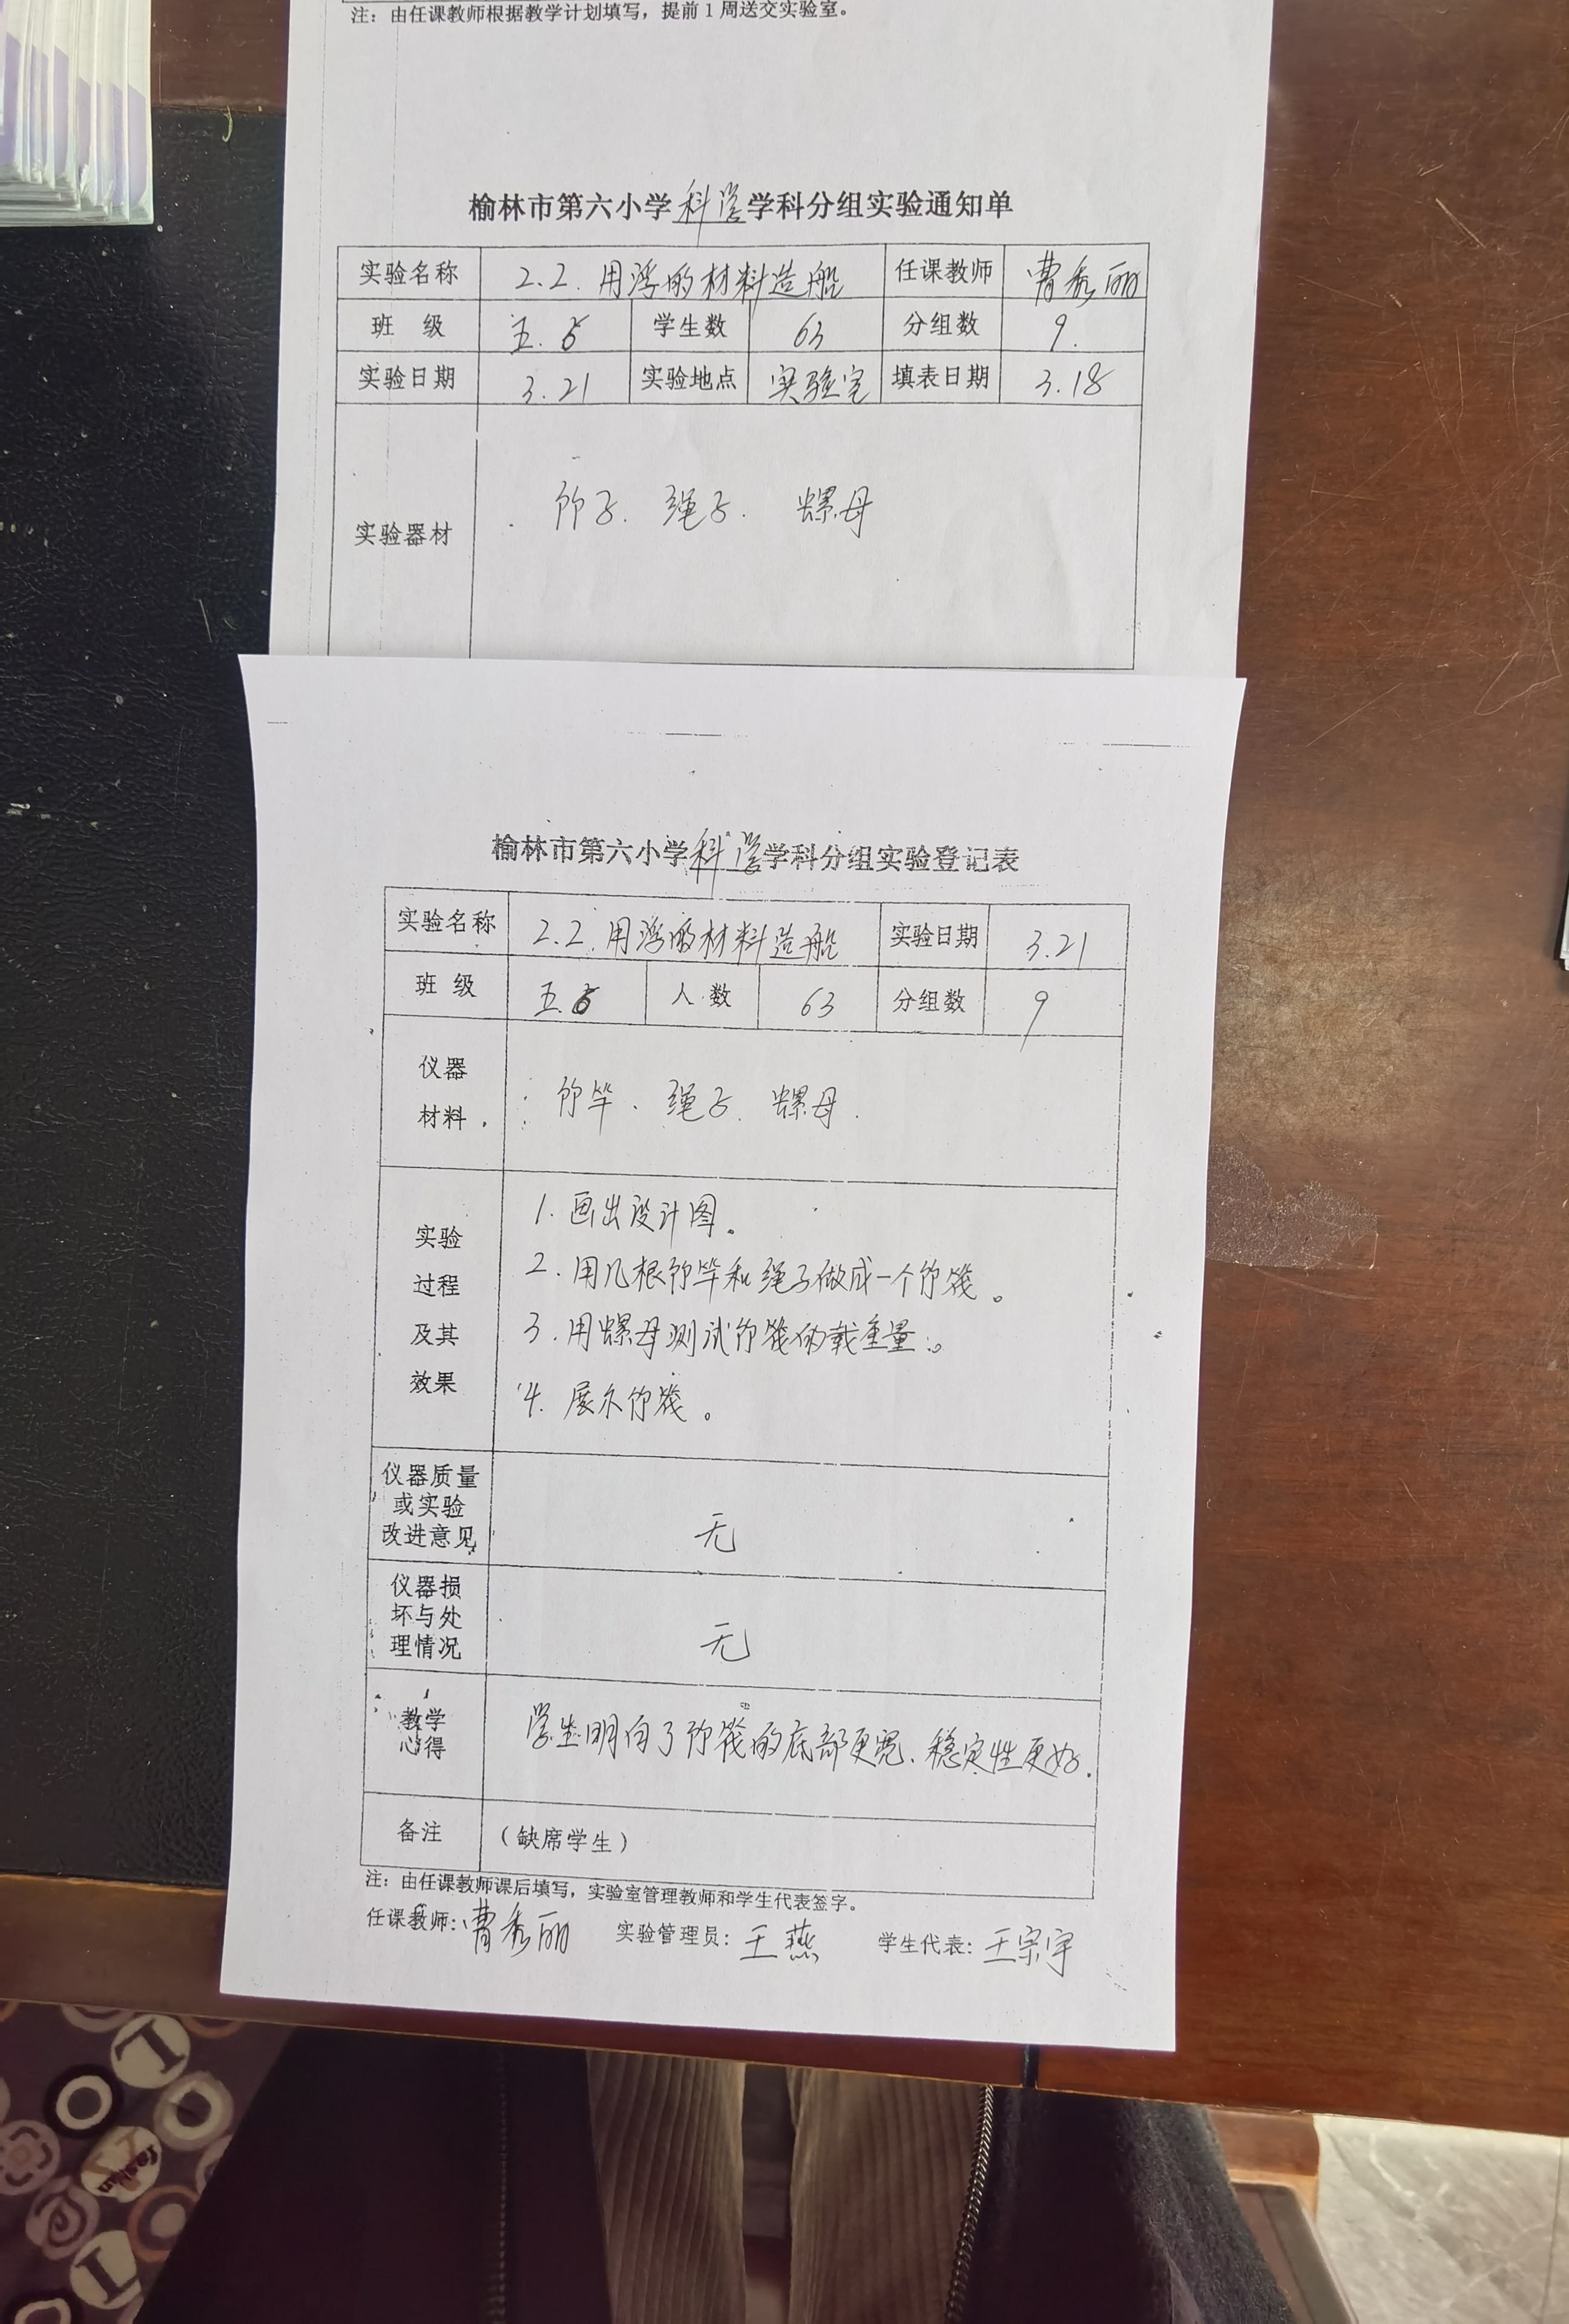 注：由任课教师根据教学计划填写，提前1周送交实验室。
榆林市第六小学科学学科分组实验通知单
实验名称 2.2.用浮的材料造船 任课教师 曹秀丽
班 级 五.6 学生数 63 分组数 9.
实验日期 3.21 实验地点 实验室 填表日期 3.18
实验器材 竹子. 绳子. 螺母
榆林市第六小学科学学科分组实验登记表
实验名称 2.2.用浮的材料造船 实验日期 3.21
班 级 五.6 人 数 63 分组数 9
仪器
材料 竹竿、绳子. 螺母.
实验
过程
及其
效果
1. 画出设计图。
2. 用几根竹竿和绳子做成一个竹筏。
3. 用螺母测试竹筏的载重量。
4. 展示竹筏。
仪器质量
或实验
改进意见 无
仪器损
坏与处
理情况 无
教学
心得 学生明白了竹筏的底部更宽、稳定性更好.
备注 （缺席学生）
注：由任课教师课后填写，实验室管理教师和学生代表签字。
任课教师：曹秀丽 实验管理员：王燕 学生代表：王宗宇